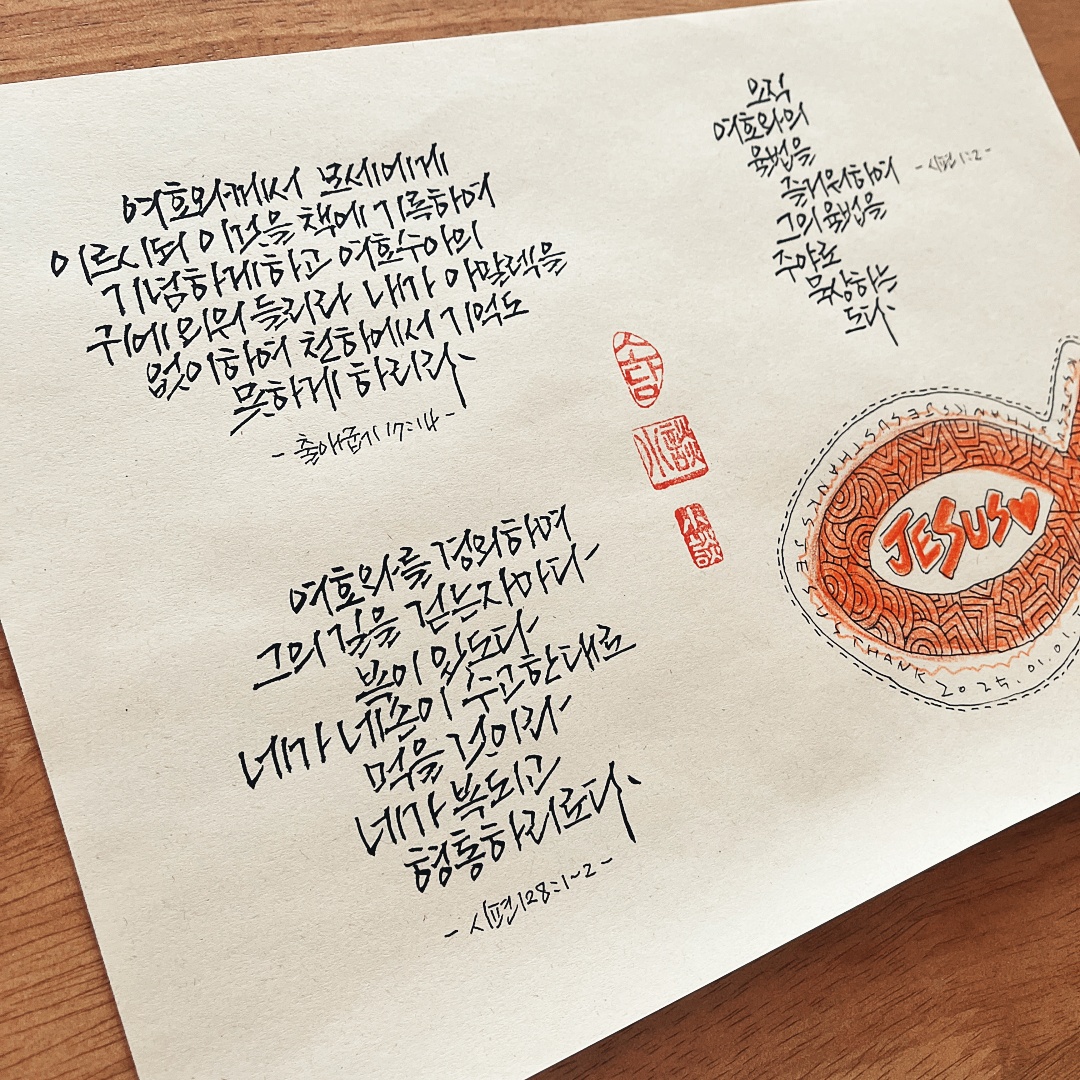 여호와께서 모세에게
이르시되 이것을 책에 기록하여
기념하게하고 여호수아의
귀에 외워 들리라 내가 아말렉을
없이하여 천하에서 기억도
못하게 하리라
- 출애굽기 17:14 -
여호와를 경외하며
그의 길을 걷는자마다
복이 있도다
네가 네손이 수고한대로
먹을 것이라
네가 복되고
형통하리로다
- 시편 128:1~2 -
오직
여호와의
율법을
즐거워하여
그의 율법을
주야로
묵상하는
도다
- 시편 1:2 -
소담
小談
小談
JESUS♥
THANKS JESUS THANKS JESUS THANKS JESUS THANK 2025.01.01